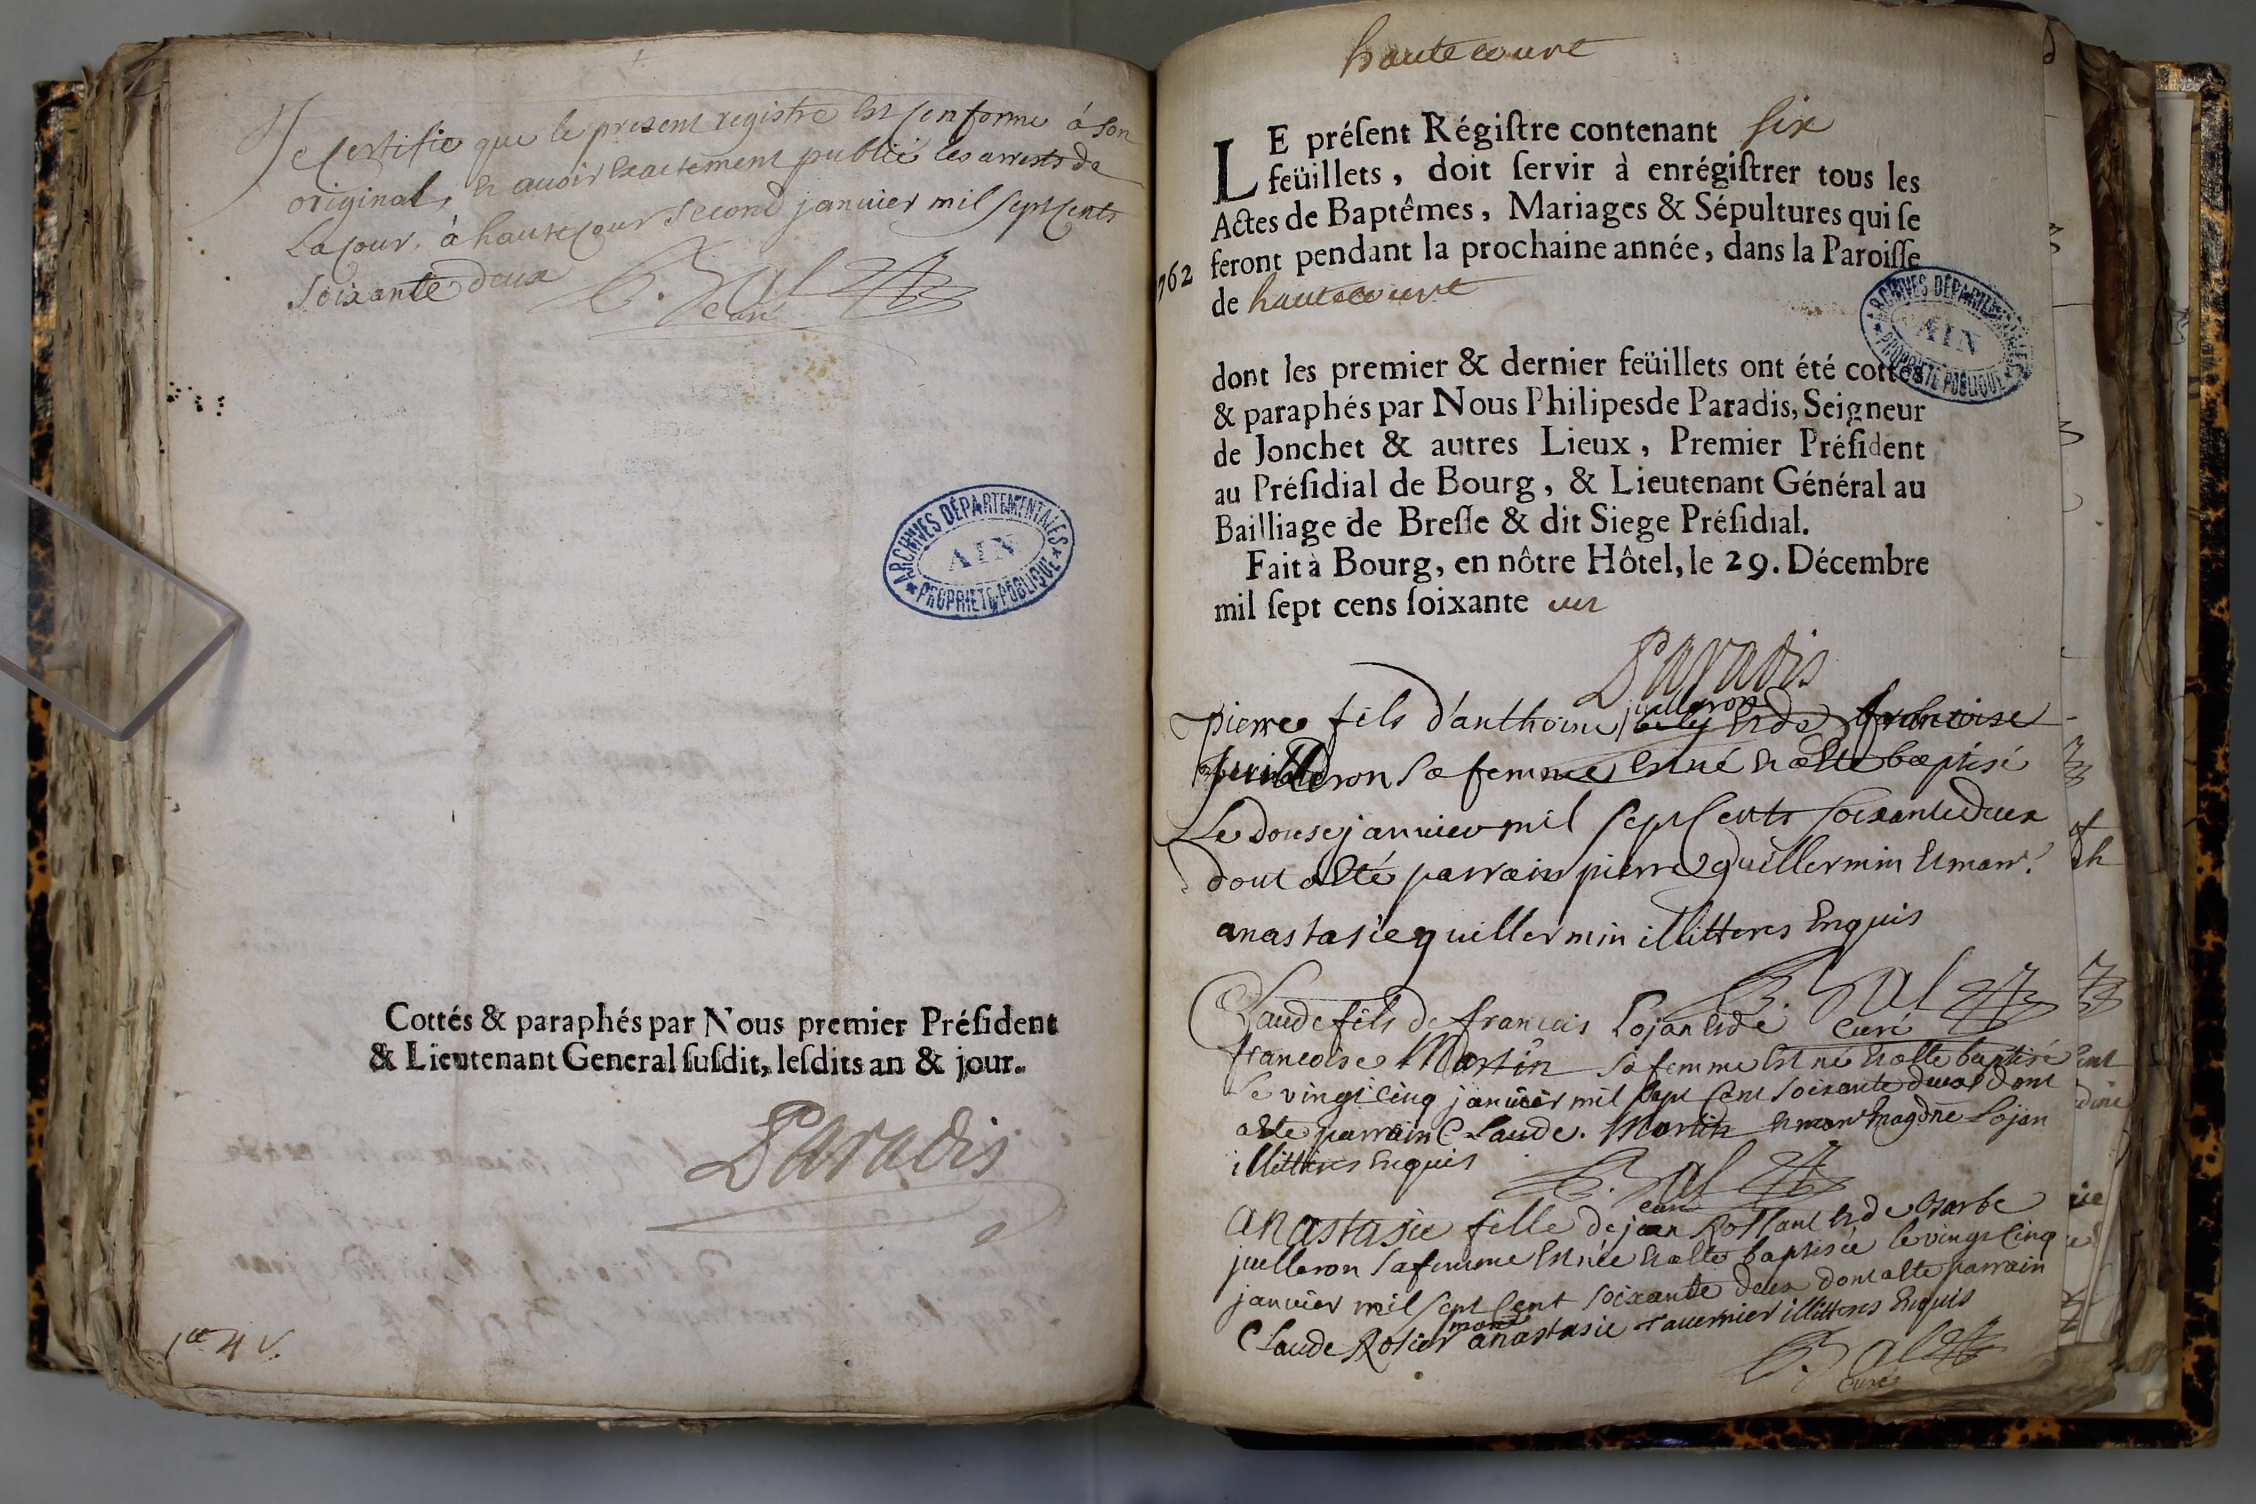 Je certifie que le present registre est conforme à son
original, et avoir exactement publié les arrests de
la cour. à hautecour second janvier mil sept cents
soixante deux
curé
ARCHIVES DÉPARTEMENTALES
AIN
PROPRIETE PUBLIQUE
Cottés & paraphés par Nous premier Préſident
& Lieutenant General ſuſdit, leſdits an & jour.
Paradis
hautecourt
LE préſent Régiſtre contenant six
feüillets, doit ſervir à enrégiſtrer tous les
Actes de Baptêmes, Mariages & Sépultures qui ſe
feront pendant la prochaine année, dans la Paroiſſe
762
de hautecourt
ARCHIVES DÉPARTEMENTALES
AIN
PROPRIETE PUBLIQUE
dont les premier & dernier feüillets ont été cottés
& paraphés par Nous Philipes de Paradis, Seigneur
de Jonchet & autres Lieux, Premier Préſident
au Préſidial de Bourg, & Lieutenant Général au
Bailliage de Breſſe & dit Siege Préſidial.
Fait à Bourg, en nôtre Hôtel, le 29. Décembre
mil ſept cens ſoixante un
Paradis
juilleron
pierre fils d'anthoine et de francoise
sa femme est né et a esté baptisé
le douse janvier mil sept cents soixante deux
dont a esté parrain pierre guillermin et marr.
anastasie guillermin illitteres enquis
curé
Claude fils de francois Lojan et de
francoise Martin sa femme est né et a esté baptisé
le vingt cinq janvier mil sept cent soixante deux dont
a esté parrain Claude. Martin et marr magdne Lojan
illitteres enquis
curé
anastasie fille de jean Rollant et de barbe
juilleron sa femme est née et a esté baptisée le vingt cinq
janvier mil sept cent soixante deux dont a esté parrain
Claude Rosier marr anastasie tavernier illitteres enquis
curé